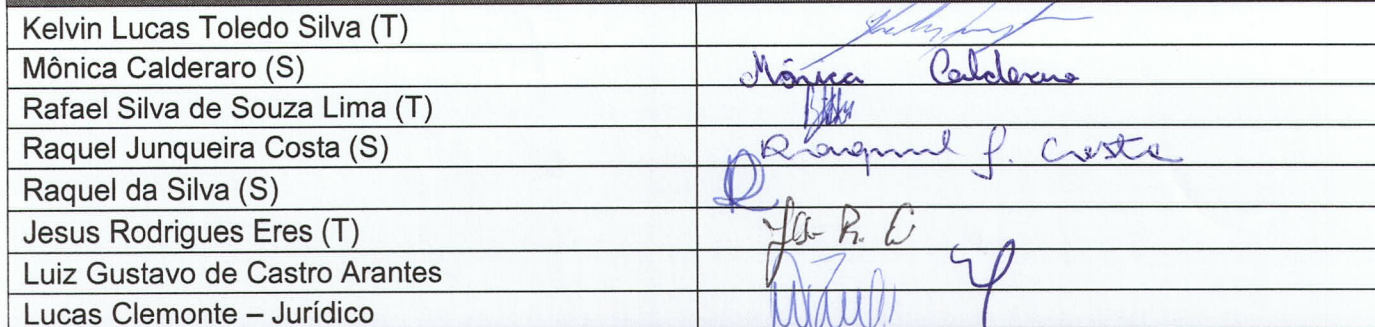 Kelvin Lucas Toledo Silva (T)
Mônica Calderaro (S) Mônica Calderaro
Rafael Silva de Souza Lima (T)
Raquel Junqueira Costa (S) Raquel J. Costa
Raquel da Silva (S)
Jesus Rodrigues Eres (T)
Luiz Gustavo de Castro Arantes
Lucas Clemonte – Jurídico